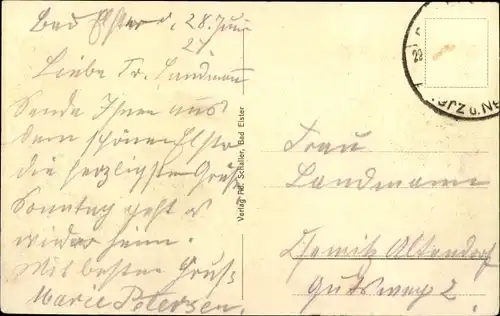 Bad Elster d. 28. Juni
27.
Liebe Fr. Landmann
Sende Ihnen aus
dem schönen Elster
die herzligsten Grüße
Sonntag geht es
wieder heim.
Mit besten Gruß
Marie Petersen.
Verlag Fr. Schaller, Bad Elster
Frau
Landmann
Altendorf
Gutsweg 2